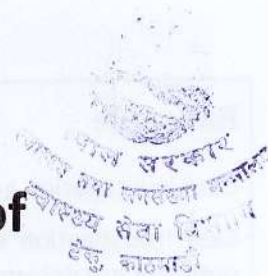 नेपाल सरकार
स्वास्थ्य तथा जनसंख्या मन्त्रालय
स्वास्थ्य सेवा विभाग
टेकु, काठमाडौं
of